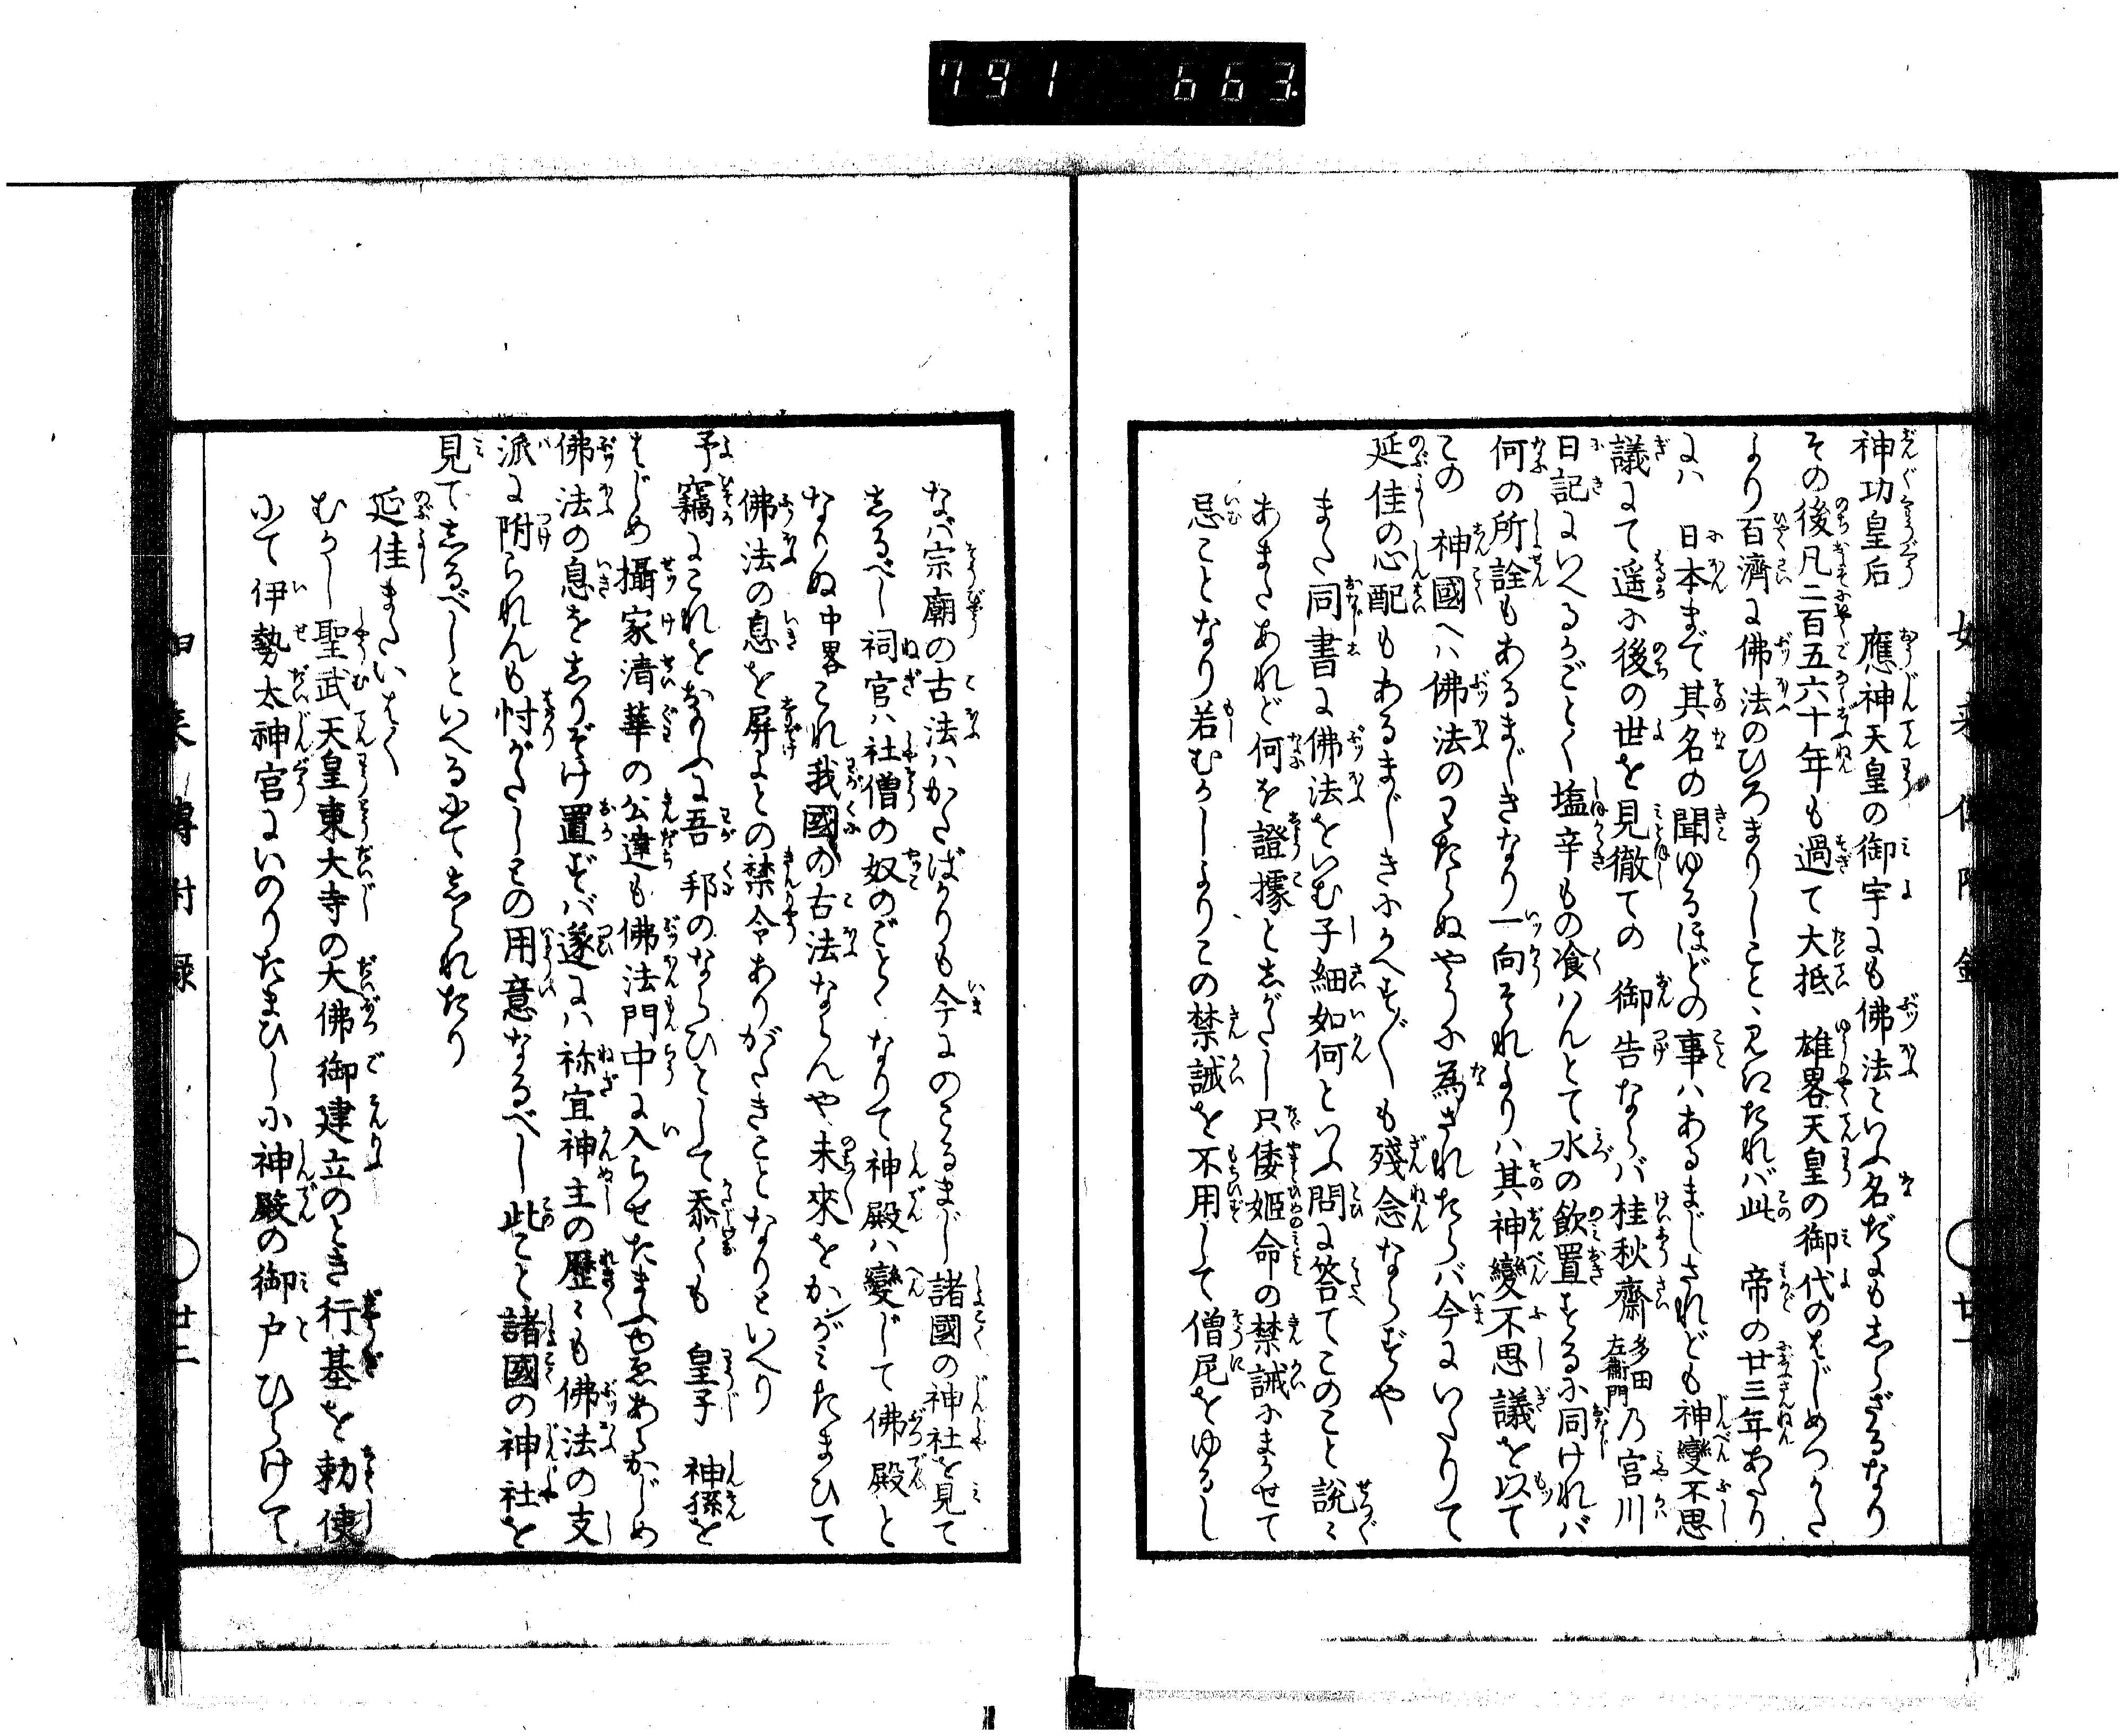 791 663.
神功皇后　應神天皇の御宇にも佛法といふ名だにもしらざるなり
その後凡二百五六十年も過て大抵　雄畧天皇の御代のはじめつかた
より百濟に佛法のひろまりしこと、見にたれバ此　帝の廿三年あたり
にハ　日本まで其名の聞ゆるほどの事ハあるまじされども神變不思
議にて遥に後の世を見徹ての　御告ならバ桂秋齋多田左衞門乃宮川
日記にいへるがごとく塩辛もの飡ハんとて水の飲置するに同けれバ
何の所詮もあるまじきなり一向それよりハ其神變不思議を以て
この　神國へハ佛法のわたらぬやうに為されたらバ今にいたりて
延佳の心配もあるまじきにかへす〴〵も殘念ならずや
また同書に佛法をいむ子細如何といふ問に答てこのこと説〻
あまたあれど何を證據としがたし只倭姫命の禁誡にまかせて
忌ことなり若むかしよりこの禁誡を不用して僧尼をゆるし
如来傳附録　廿一
なバ宗廟の古法ハかたばかりも今にのこるまじ諸國の神社を見て
しるべし祠官ハ社僧の奴のごとくなりて神殿ハ變じて佛殿と
なりぬ中畧これ我國の古法ならんや未來をかゞみたまひて
佛法の息を屏よとの禁令ありがたきことなりといへり
予竊にこれをおもふに吾邦のならひとして忝くも　皇子　神孫を
はじめ攝家清華の公達も佛法門中に入らせたまふゆゑあらかじめ
佛法の息をしりぞけ置ずバ遂にハ祢宜神主の歴〻も佛法の支
派に附られんも忖がたしとの用意なるべし此こと諸國の神社を
見てしるべしといへるにてしられたり
延佳またいはく
むかし聖武天皇東大寺の大佛御建立のとき行基を勅使
にて伊勢太神宮にいのりたまひしに神殿の御戸ひらけて
如来傳附録　廿二